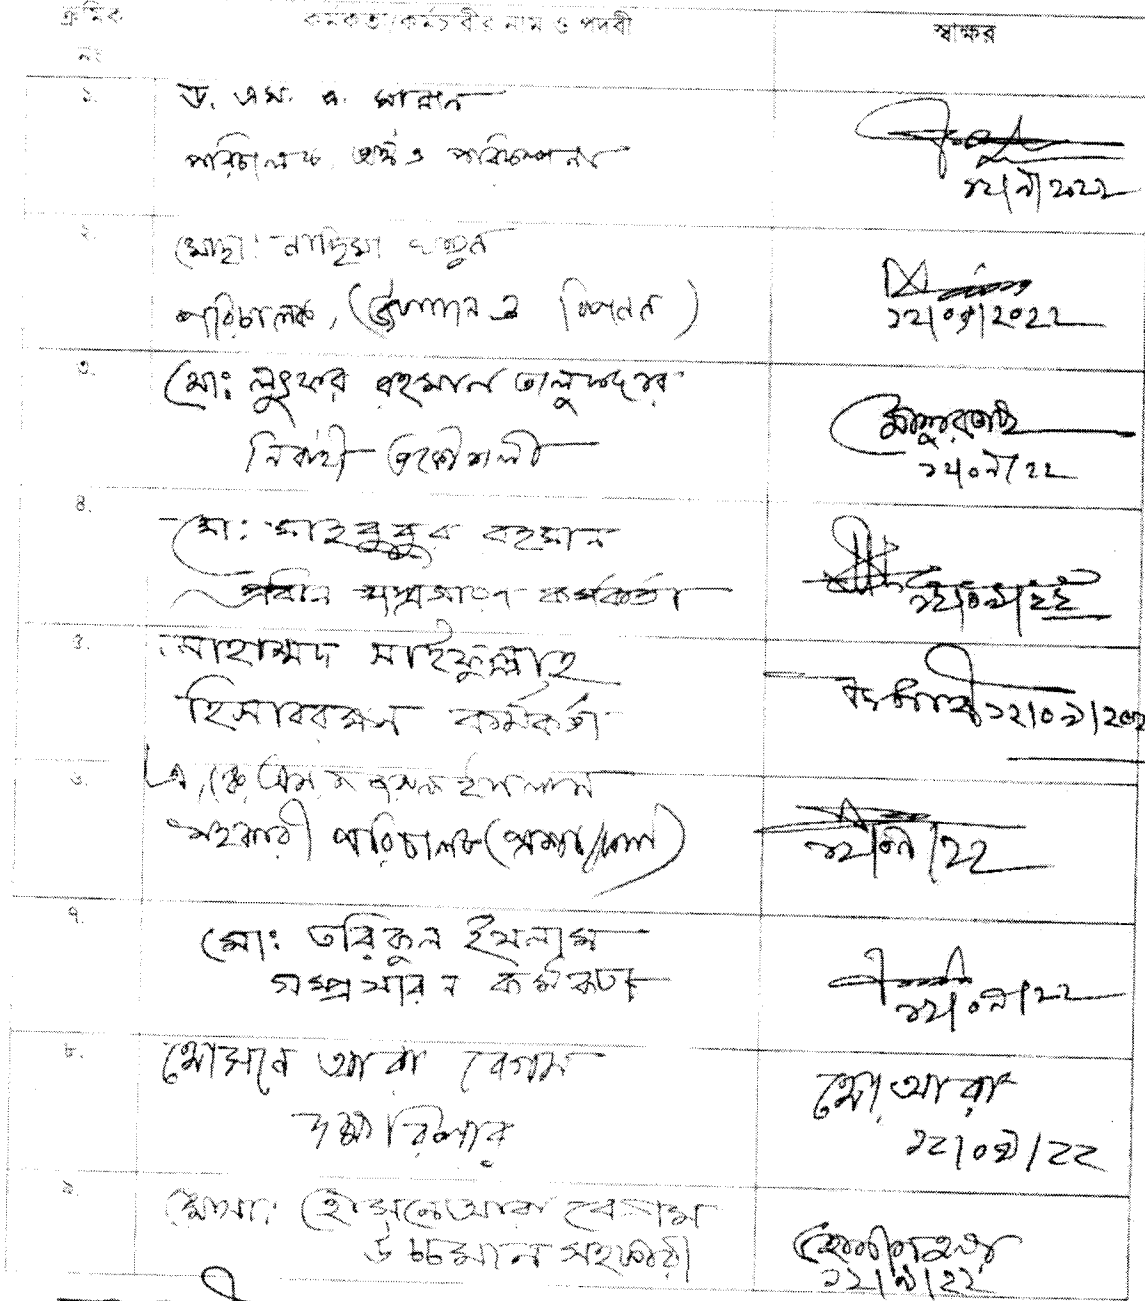 ক্রমিক নং
কর্মকর্তা/কর্মচারীর নাম ও পদবী
স্বাক্ষর
১.
ড. এম. এ. মান্নান
পরিচালক, অর্থ ও পরিকল্পনা
১২/৯/২০২২
২.
মোছা: নাছিমা খাতুন
পরিচালক, (উৎপাদন ও বিপনন)
১২/০৯/২০২২
৩.
মো: লুৎফর রহমান তালুকদার
নির্বাহী প্রকৌশলী
১২/০৯/২২
৪.
মো: মাহবুবুর রহমান
প্রধান সম্প্রসারণ কর্মকর্তা
১২/০৯/২২
৫.
মোহাম্মদ সাইফুল্লাহ
হিসাবরক্ষন কর্মকর্তা
১২/০৯/২০২
৬.
এ, কে, এম, ইসলাম
সহকারী পরিচালক
১২/০৯/২২
৭.
মো: তরিকুল ইসলাম
সম্প্রসারন কর্মকর্তা
১২/০৯/২২
৮.
আরা বেগম
আরা
১২/০৯/২২
৯.
মোসা: হোসনেআরা বেগম
উচ্চমান সহকারী
১২/৯/২২